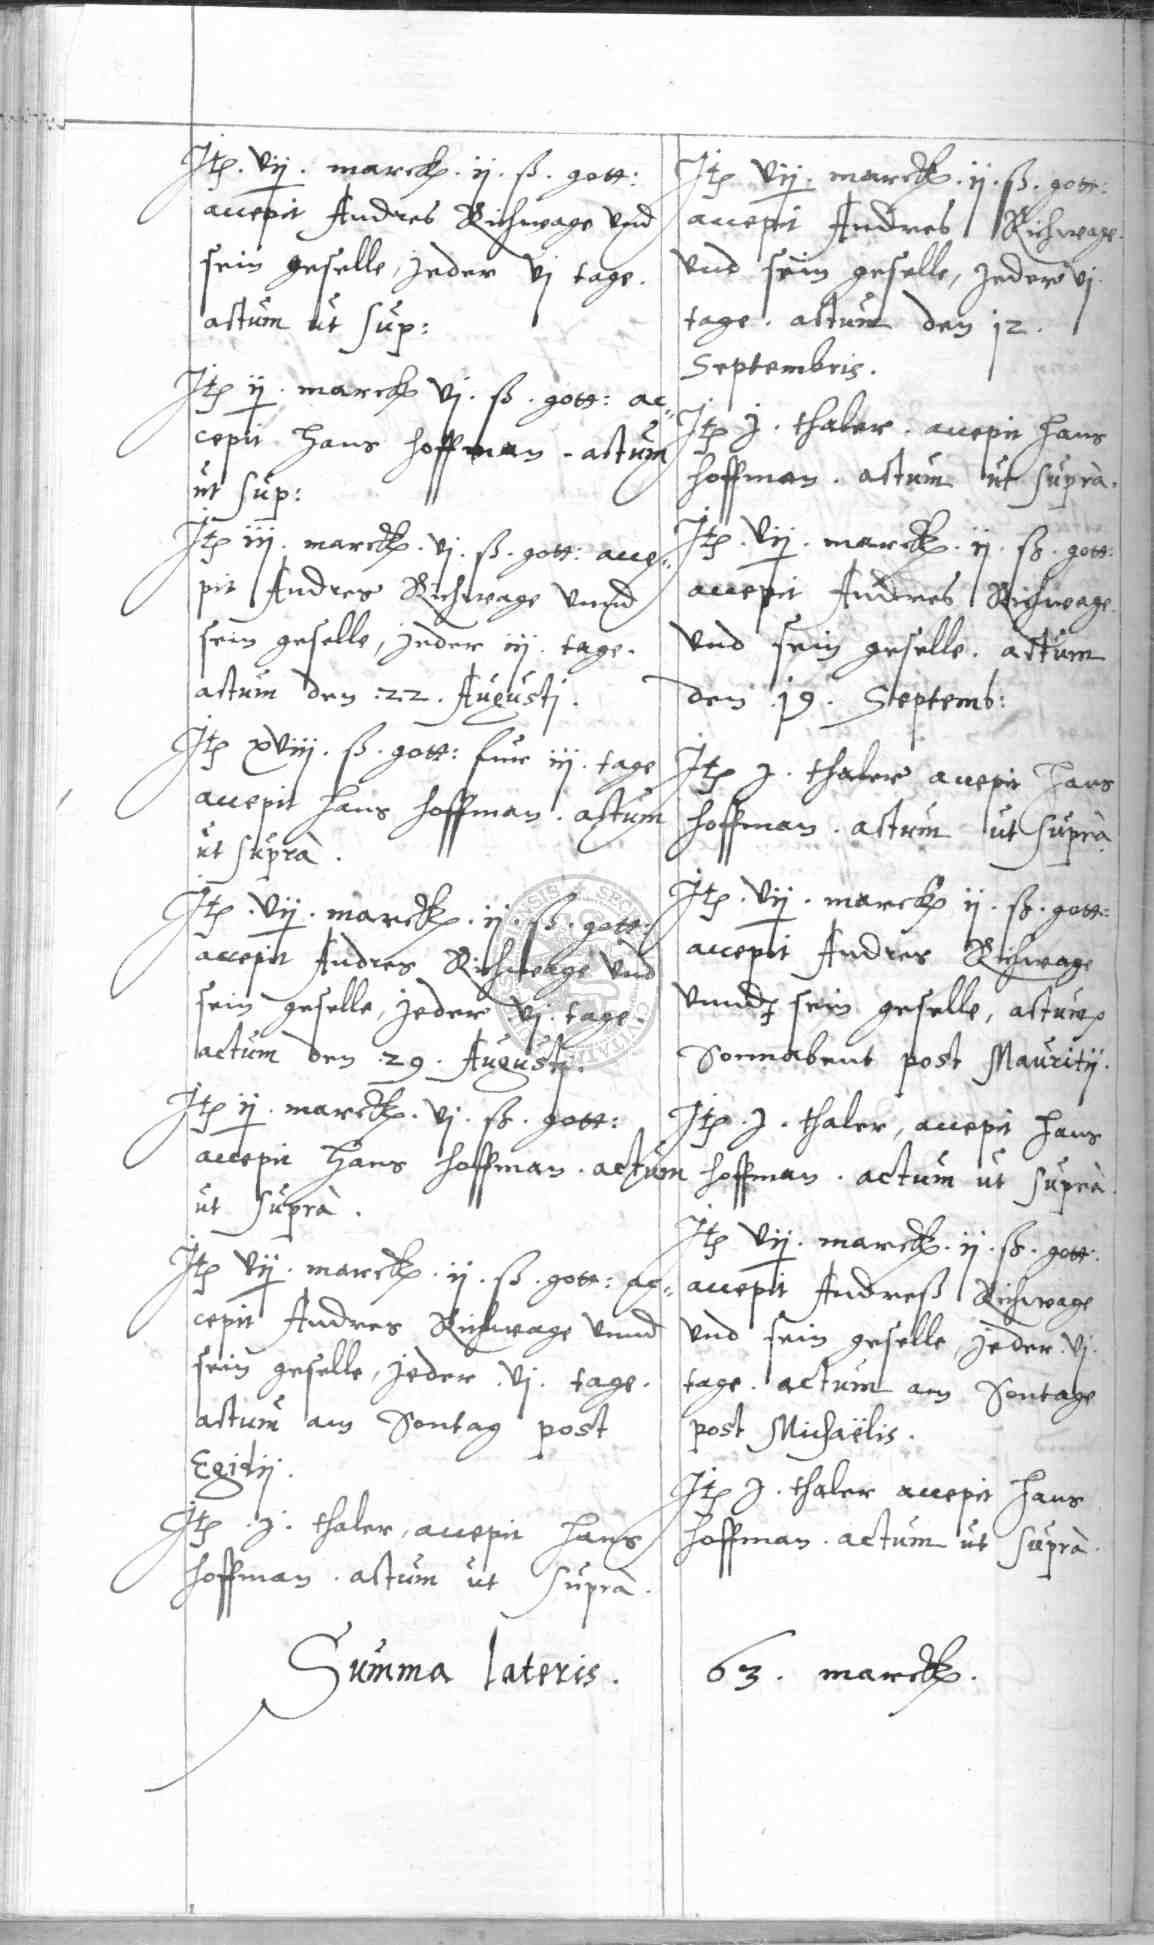 Jtē. vij. marck. ij. ß. gott:
accepit Andres Richwage vnd
sein geselle, jeder vj tage.
actum ut sup:
Jtē ij. marck vj. ß. gott: ac=
cepit Hans Hoffman. actum
ut sup:
Jtē iij. marck. vj. ß. gott: acce=
pit Andres Richwage vnnd
sein geselle, jeder iij. tage.
actum den .22. Augustj.
Jtē xviij. ß. gott: fur iij. tage
accepit Hans Hoffman. actum
ut suprà.
Jtē. vij. marck. ij. ß. gott:
accepit Andres Richwage vnd
sein geselle, jeder vj. tage.
actum den .29. Augustj.
Jtē ij. marck. vj. ß. gott:
accepit Hans Hoffman. actum
ut suprà.
Jtē vij. marck. ij. ß. gott: ac=
cepit Andres Richwage vnnd
sein geselle, jeder .vj. tage.
actum am Sontag post
Egidij.
Jtē .j. thaler, accepit Hans
Hoffman. actum ut suprà.
Jtē vij. marck. ij. ß. gott:
accepit Andres Richwage.
vnd sein geselle, jeder vj.
tage. actum den 12.
Septembris.
Jtē j. thaler. accepit Hans
Hoffman. actum ut suprà.
Jtē. vij. marck. ij. ß. gott:
accepit Andres Richwage.
vnd sein geselle. actum
den .19. Septemb:
Jtē j. thaler accepit Hans
Hoffman. actum ut suprà
Jtē. vij. marck ij. ß. gott:
accepit Andres Richwage
vnnd sein geselle, actum
Sonnabent post Mauritij.
Jtē. j. thaler, accepit Hans
Hoffman. actum ut suprà.
Jtē vij. marck. ij. ß. gott:
accepit Andreß Richwage
vnd sein geselle, jeder. vj.
tage. actum am Sontage
post Michaëlis.
Jtē j. thaler accepit Hans
Hoffman. actum ut suprà.
Summa lateris. 63. marck.